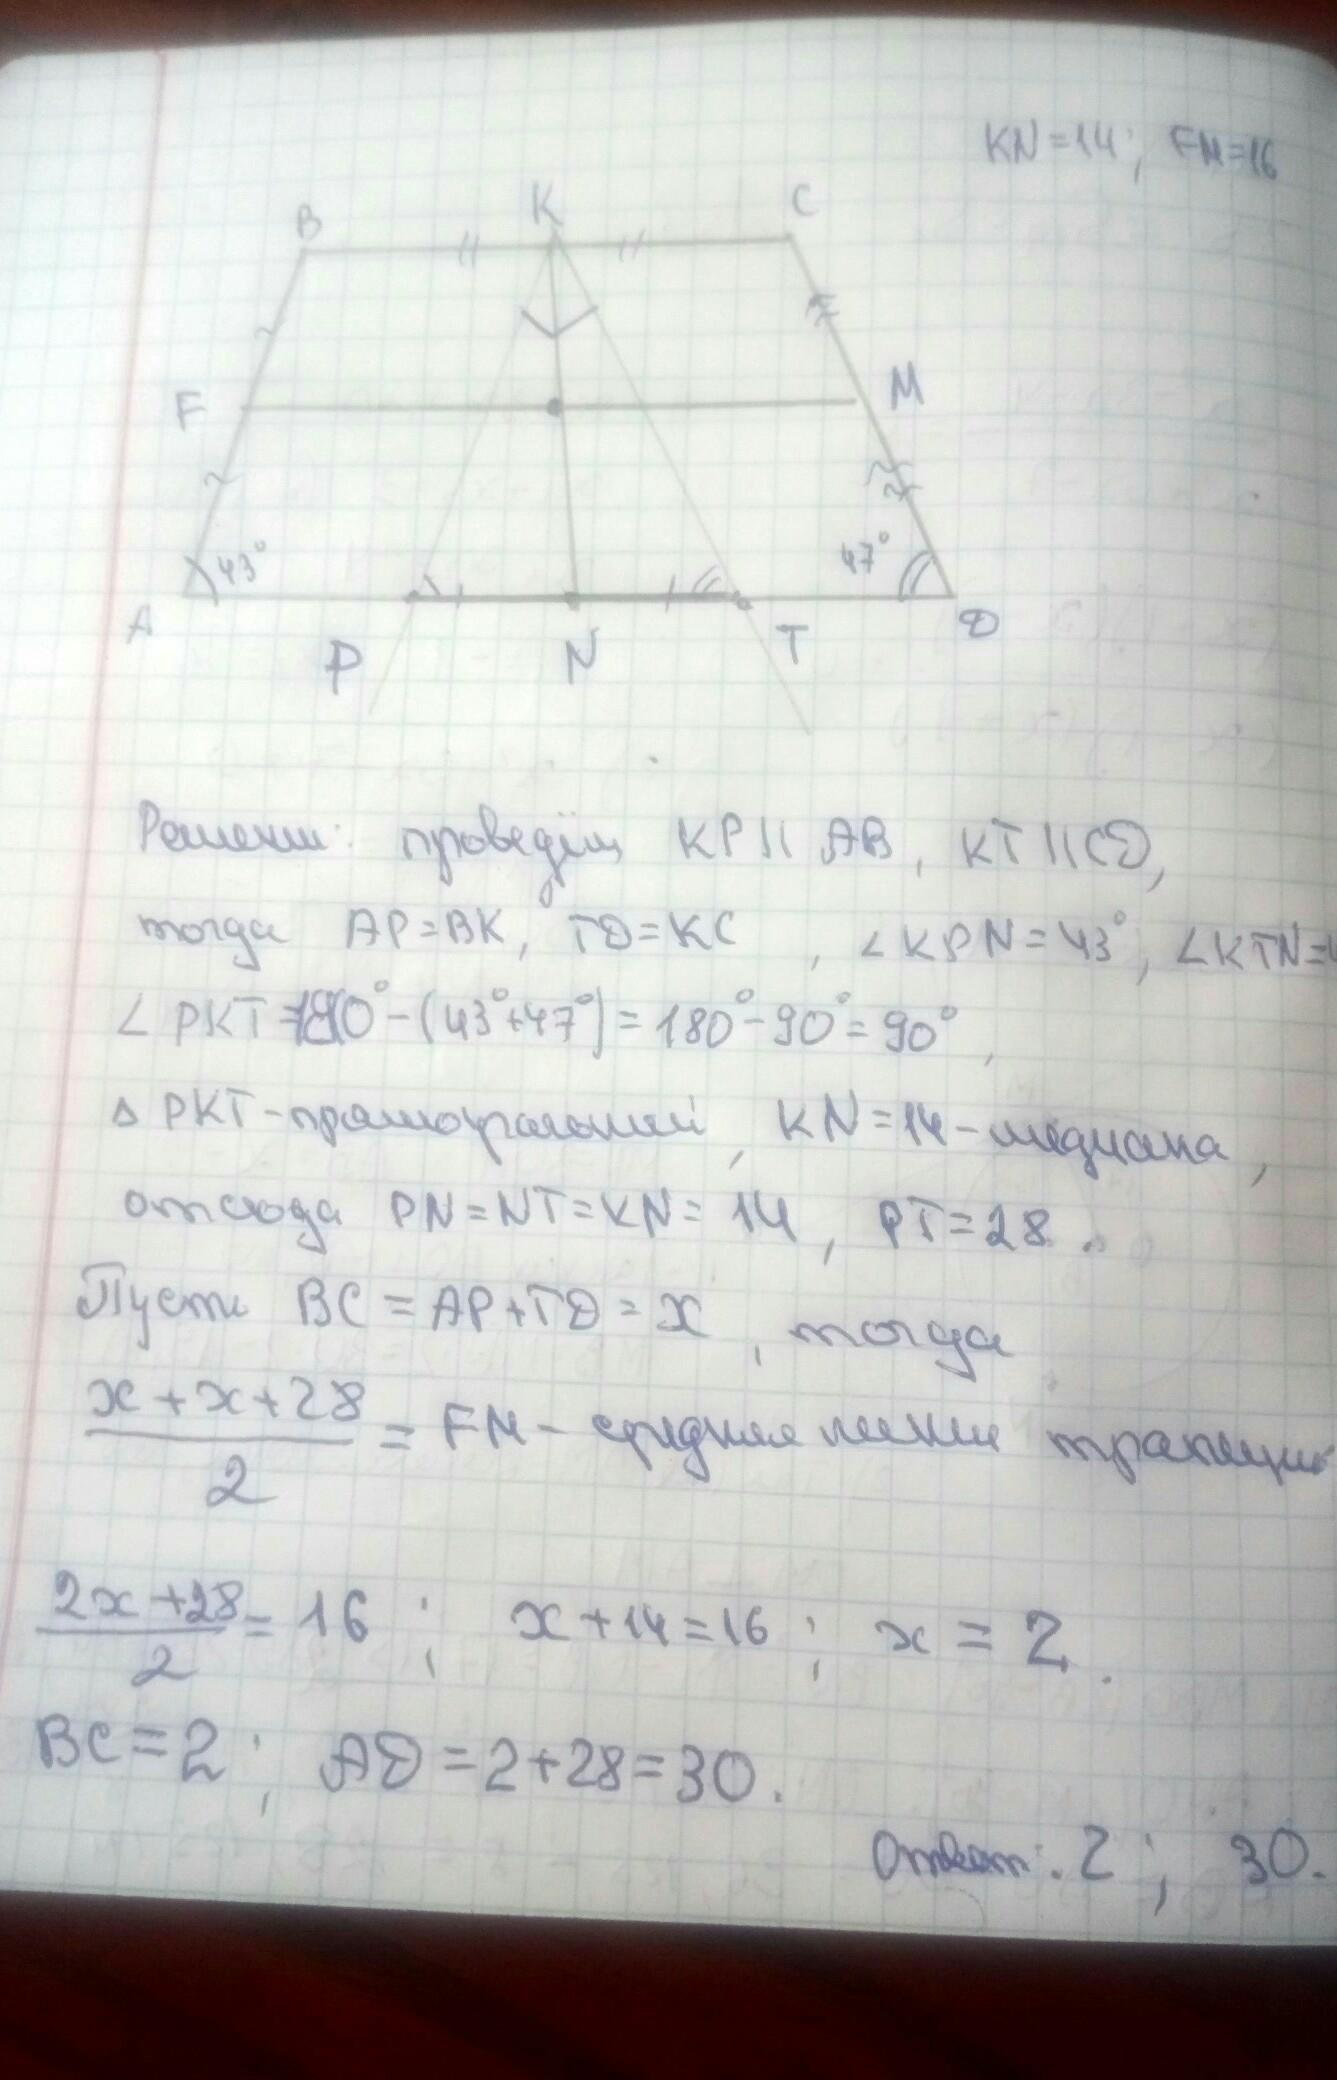 KN=14; FM=16
B K C
F M
43° 47°
A P N T D
Решение: проведём KP || AB, KT || CD,
тогда AP=BK, TD=KC, ∠KPN=43°, ∠KTN=4
∠PKT=180°-(43°+47°)=180°-90°=90°,
Δ PKT-прямоугольный, KN=14-медиана,
отсюда PN=NT=KN=14, PT=28.
Пусть BC=AP+TD=x, тогда
(x+x+28)/2 = FM - средняя линия трапеции
(2x+28)/2 = 16; x+14=16; x=2.
BC=2; AD=2+28=30.
Ответ: 2; 30.